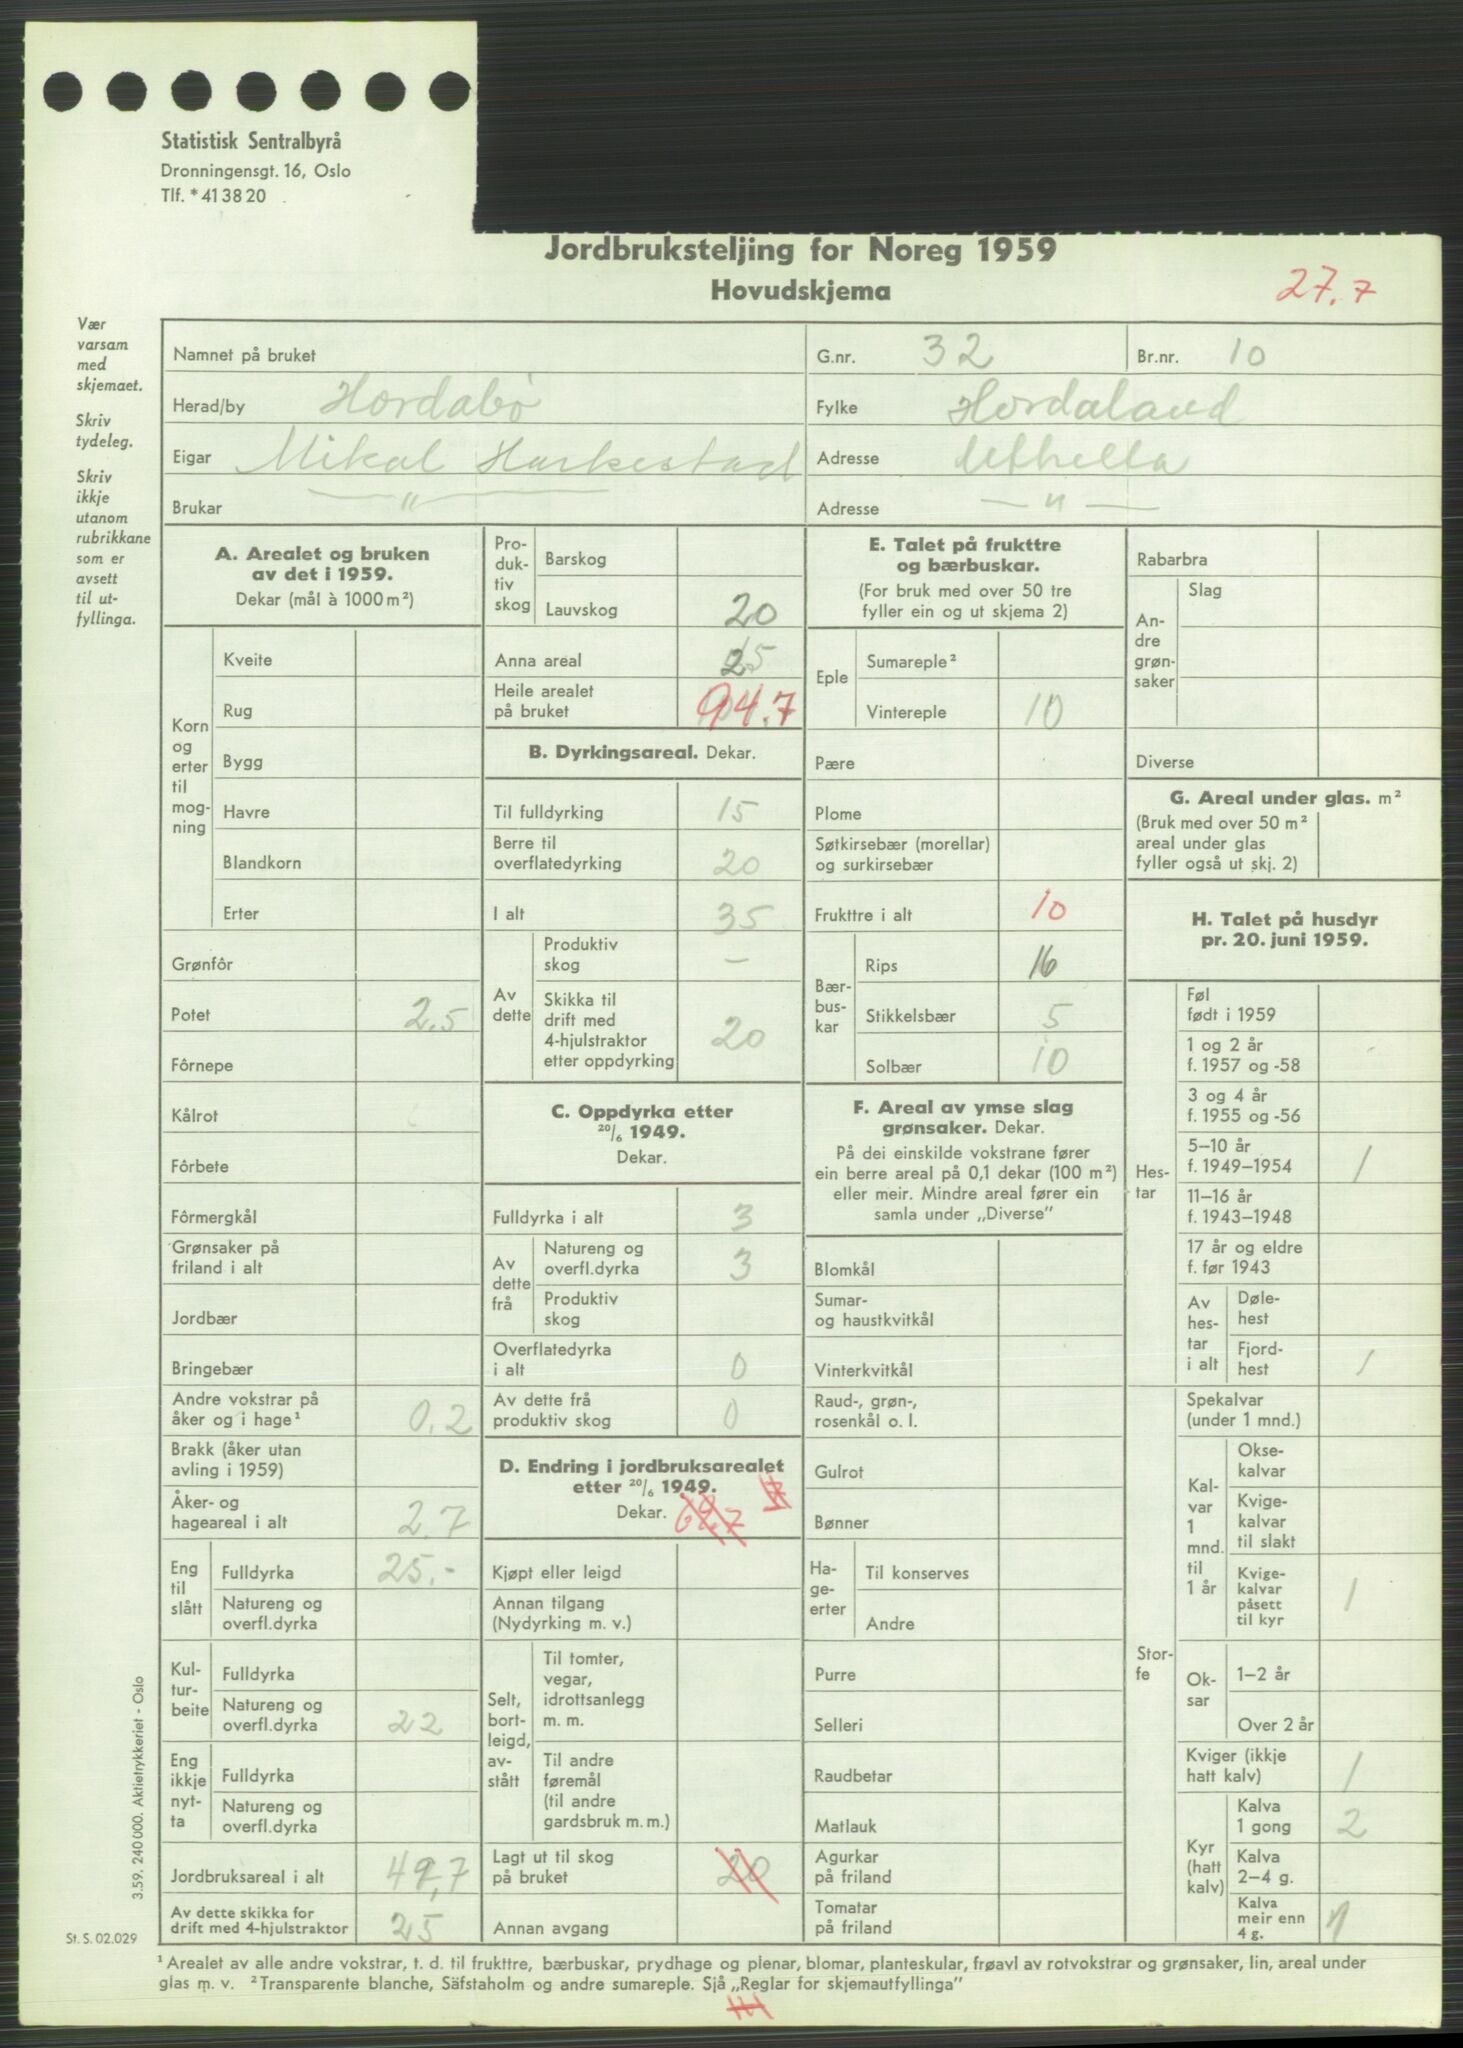 Statistisk Sentralbyrå
Dronningensgt. 16, Oslo
Tlf. * 41 38 20
Jordbruksteljing for Noreg 1959
Hovudskjema
27.7
Vær
varsam
med
skjemaet.
Skriv
tydeleg.
Skriv
ikkje
utanom
rubrikkane
som er
avsett
til ut-
fyllinga.
Namnet på bruket
G.nr. 32
Br.nr. 10
Herad/by Hordabø
Fylke Hordaland
Eigar Mikal Harkestad
Adresse Uthella
Brukar — " —
Adresse — " —
A. Arealet og bruken
av det i 1959.
Dekar (mål à 1000 m²)
Korn
og
erter
til
mog-
ning
Kveite
Rug
Bygg
Havre
Blandkorn
Erter
Grønfôr
Potet 2,5
Fôrnepe
Kålrot
Fôrbete
Fôrmergkål
Grønsaker på
friland i alt
Jordbær
Bringebær
Andre vokstrar på
åker og i hage¹ 0,2
Brakk (åker utan
avling i 1959)
Åker- og
hageareal i alt 2,7
Eng
til
slått
Fulldyrka 25.-
Natureng og
overfl.dyrka
Kul-
tur-
beite
Fulldyrka
Natureng og
overfl.dyrka 22
Eng
ikkje
nyt-
ta
Fulldyrka
Natureng og
overfl.dyrka
Jordbruksareal i alt 49,7
Av dette skikka for
drift med 4-hjulstraktor 25
Pro-
duk-
tiv
skog
Barskog
Lauvskog 20
Anna areal 25
Heile arealet
på bruket 94.7
B. Dyrkingsareal. Dekar.
Til fulldyrking 15
Berre til
overflatedyrking 20
I alt 35
Av
dette
Produktiv
skog —
Skikka til
drift med
4-hjulstraktor
etter oppdyrking 20
C. Oppdyrka etter
20/6 1949.
Dekar.
Fulldyrka i alt 3
Av
dette
frå
Natureng og
overfl.dyrka 3
Produktiv
skog
Overflatedyrka
i alt 0
Av dette frå
produktiv skog 0
D. Endring i jordbruksarealet
etter 20/6 1949.
Dekar. 69,7
Kjøpt eller leigd
Annan tilgang
(Nydyrking m. v.)
Selt,
bort-
leigd,
av-
stått
Til tomter,
vegar,
idrottsanlegg
m. m.
Til andre
føremål
(til andre
gardsbruk m. m.)
Lagt ut til skog
på bruket 20
Annan avgang
E. Talet på frukttre
og bærbuskar.
(For bruk med over 50 tre
fyller ein og ut skjema 2)
Eple
Sumareple²
Vintereple 10
Pære
Plome
Søtkirsebær (morellar)
og surkirsebær
Frukttre i alt 10
Bær-
bus-
kar
Rips 16
Stikkelsbær 5
Solbær 10
F. Areal av ymse slag
grønsaker. Dekar.
På dei einskilde vokstrane fører
ein berre areal på 0,1 dekar (100 m²)
eller meir. Mindre areal fører ein
samla under „Diverse”
Blomkål
Sumar-
og haustkvitkål
Vinterkvitkål
Raud-, grøn-,
rosenkål o. l.
Gulrot
Bønner
Ha-
ge-
erter
Til konserves
Andre
Purre
Selleri
Raudbetar
Matlauk
Agurkar
på friland
Tomatar
på friland
Rabarbra
An-
dre
grøn-
saker
Slag
Diverse
G. Areal under glas. m²
(Bruk med over 50 m²
areal under glas
fyller også ut skj. 2)
H. Talet på husdyr
pr. 20. juni 1959.
Hes-
tar
Føl
født i 1959
1 og 2 år
f. 1957 og -58
3 og 4 år
f. 1955 og -56
5–10 år
f. 1949–1954 1
11–16 år
f. 1943–1948
17 år og eldre
f. før 1943
Av
hes-
tar
i alt
Døle-
hest
Fjord-
hest 1
Stor-
fe
Spekalvar
(under 1 mnd.)
Kal-
var
1
mnd.
til
1 år
Okse-
kalvar
Kvige-
kalvar
til slakt
Kvige-
kalvar
påsett
til kyr 1
Ok-
sar
1–2 år
Over 2 år
Kviger (ikkje
hatt kalv) 1
Kyr
(hatt
kalv)
Kalva
1 gong 2
Kalva
2–4 g.
Kalva
meir enn
4 g.
3.59. 240 000. Aktietrykkeriet - Oslo
St. S. 02.029
¹ Arealet av alle andre vokstrar, t. d. til frukttre, bærbuskar, prydhage og plenar, blomar, planteskular, frøavl av rotvokstrar og grønsaker, lin, areal under
glas m. v. ² Transparente blanche, Säfstaholm og andre sumareple. Sjå „Reglar for skjemautfyllinga”